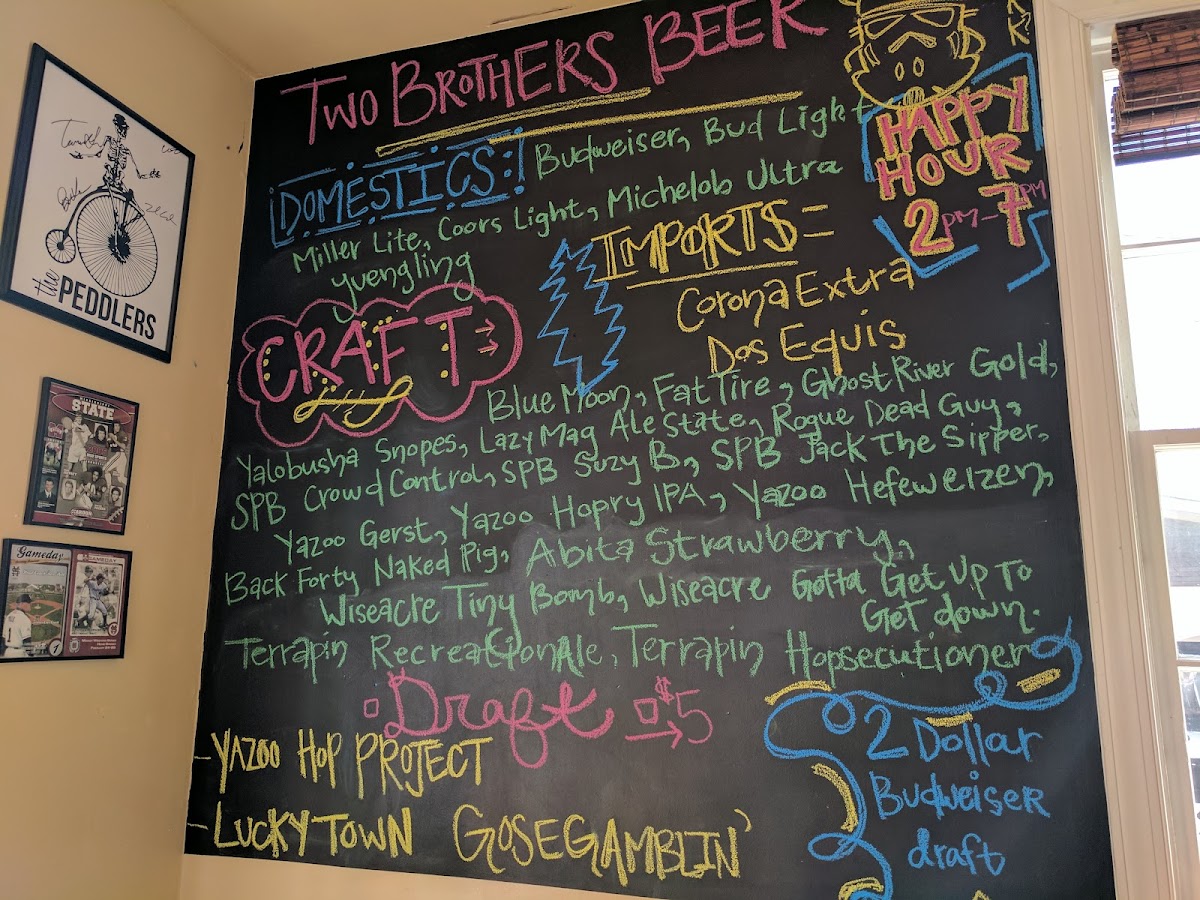 TWO BROTHERS BEER
HAPPY
HOUR
2PM-7PM
DOMESTICS:
Budweiser, Bud Light
Miller Lite, Coors Light, Michelob Ultra
yuengling
IMPORTS =
Corona Extra
Dos Equis
CRAFT
Blue Moon, Fat Tire, Ghost River Gold,
Yalobusha Snopes, Lazy Mag Ale State, Rogue Dead Guy,
SPB Crowd Control, SPB Suzy B, SPB Jack The Sipper,
Yazoo Gerst, Yazoo Hopry IPA, Yazoo Hefeweizen,
Back Forty Naked Pig, Abita Strawberry,
Wiseacre Tiny Bomb, Wiseacre Gotta Get Up To
Get down.
Terrapin RecreationAle, Terrapin Hopsecutioner
Draft $5
- YAZOO HOP PROJECT
- LUCKY TOWN GOSEGAMBLIN'
2 Dollar
Budweiser
draft
the PEDDLERS
STATE
Gameday
7